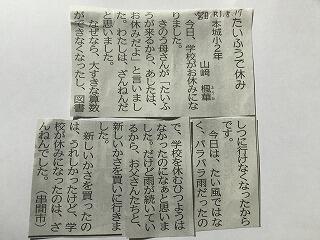 たいふうで休み
宮日 R1.8.17
本城小2年
山﨑 楓華
今日、学校がお休みにな
りました。
きのう母さんが「たいふ
うが来るから、あしたは、
お休みだよ」と言いまし
た。わたしは、ざんねんだ
と思いました。
なぜなら、大すきな算数
ができなくなったし、図書
しつに行けなくなったから
です。
今日は、たい風ではな
く、パラパラ雨だったの
で、学校を休むひつようは
なかったのになぁと思いま
した。だけど雨が続いてい
るから、お父さんたちと、
新しいかさを買いに行きま
した。
新しいかさを買ったの
は、うれしかったけど、学
校が休みになったのは、ざ
んねんでした。(串間市)